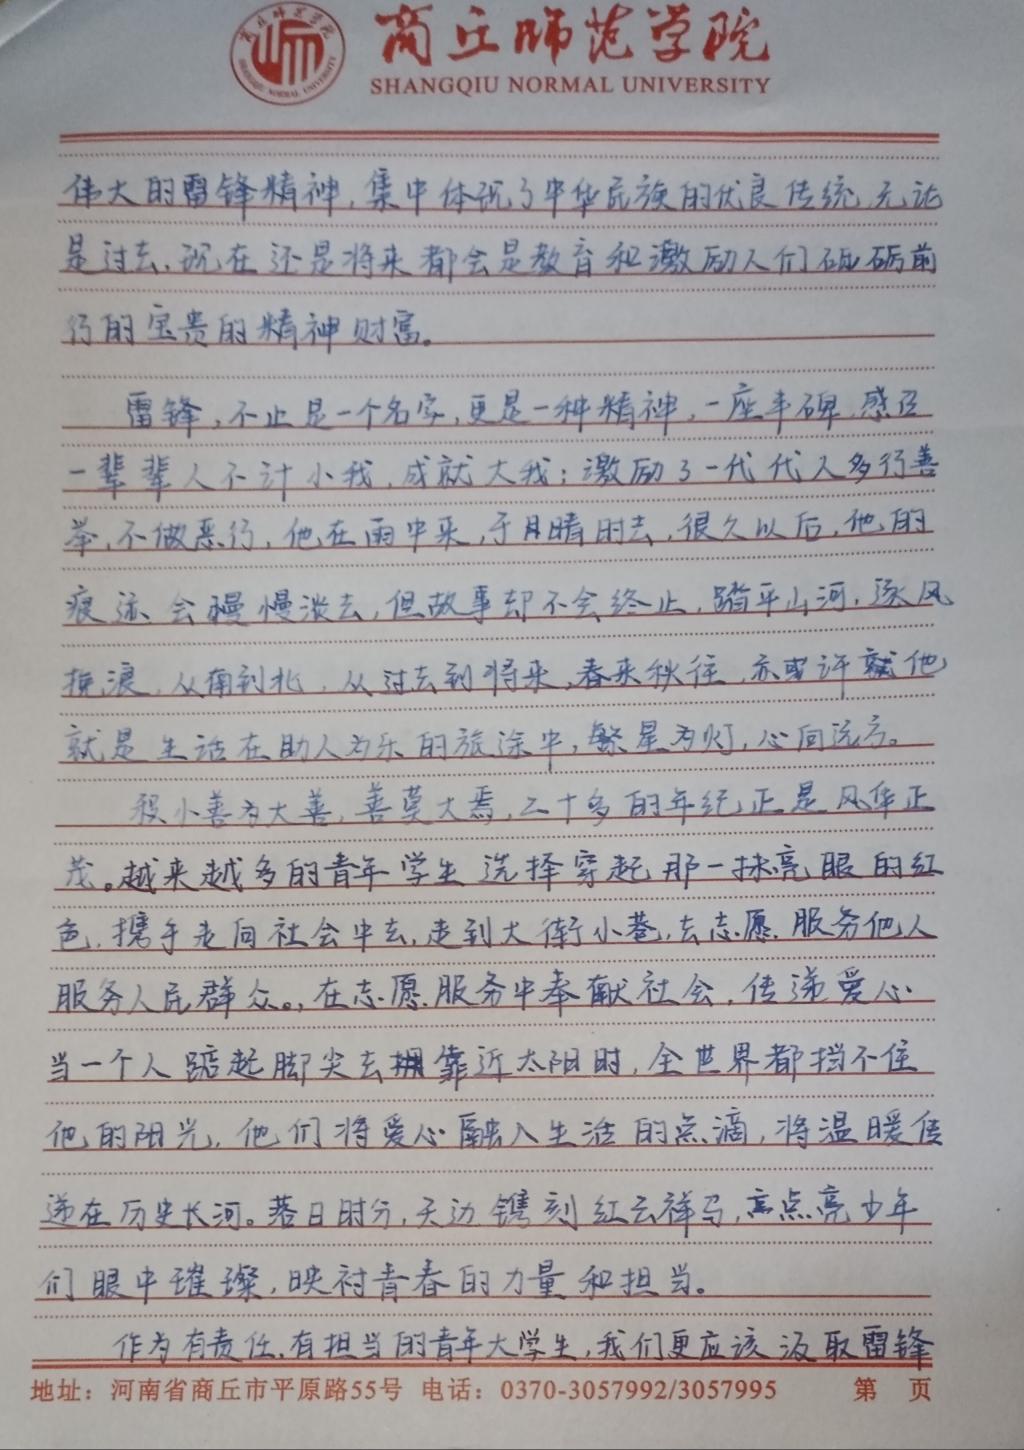 商丘师范学院
SHANGQIU NORMAL UNIVERSITY
伟大的雷锋精神，集中体现了中华民族的优良传统，无论
是过去、现在还是将来都会是教育和激励人们砥砺前
行的宝贵的精神财富。
雷锋，不止是一个名字，更是一种精神，一座丰碑，感召
一辈辈人不计小我，成就大我；激励了一代代人多行善
举，不做恶行，他在雨中来，于月晴时去，很久以后，他的
痕迹会慢慢淡去，但故事却不会终止，踏平山河，逐风
挽浪，从南到北，从过去到将来，春来秋往，亦或许就他
就是生活在助人为乐的旅途中，繁星为灯，心向远方。
积小善为大善，善莫大焉，二十多的年纪正是风华正
茂。越来越多的青年学生选择穿起那一抹亮眼的红
色，携手走向社会中去，走到大街小巷，去志愿服务他人
服务人民群众。，在志愿服务中奉献社会，传递爱心
当一个人踮起脚尖去靠近太阳时，全世界都挡不住
他的阳光，他们将爱心融入生活的点滴，将温暖传
递在历史长河。落日时分，天边镌刻红云祥马，点亮少年
们眼中璀璨，映衬青春的力量和担当。
作为有责任、有担当的青年大学生，我们更应该汲取雷锋
地址：河南省商丘市平原路55号 电话：0370-3057992/3057995 第 页